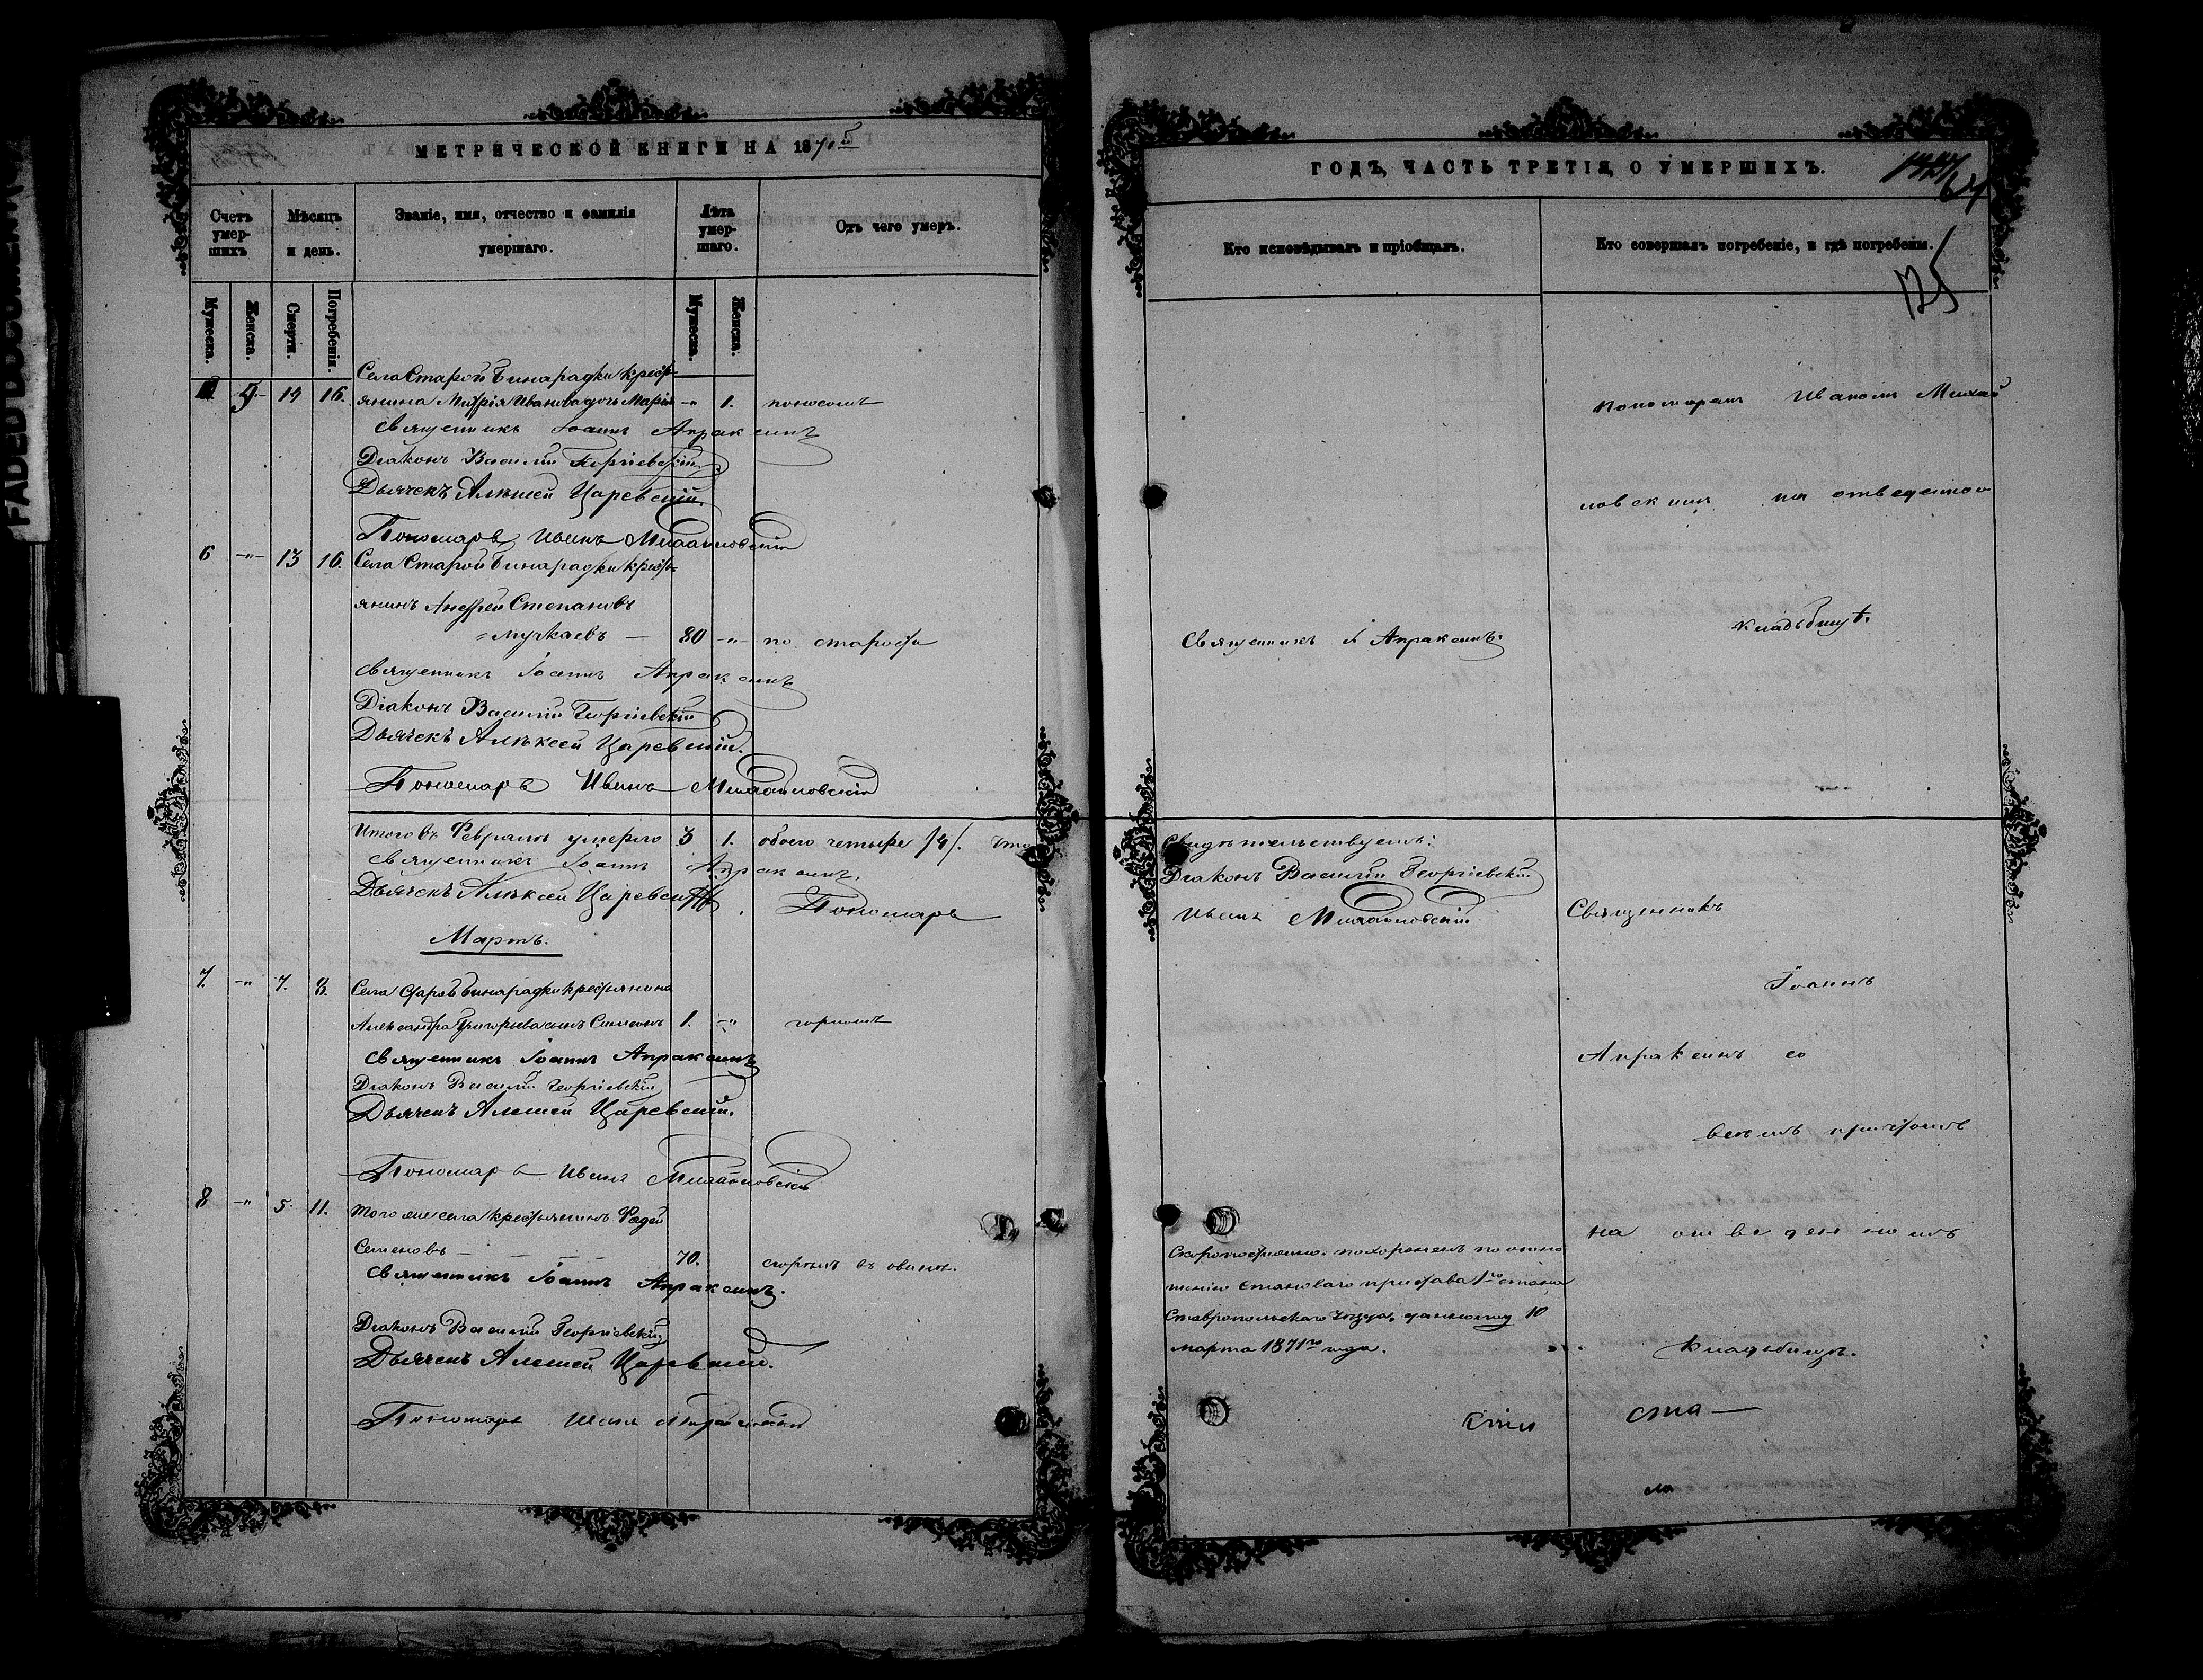 FADED DOCUMENT
МЕТРИЧЕСКОЙ КНИГИ НА 1871й
Счетъ умершихъ
Мѣсяцъ и день.
Званіе, имя, отчество и фамилія умершаго.
Лѣта умершаго.
Отъ чего умеръ.
Мужеска. Женска. Смерти. Погребенія. Мужеска. Женска.
Села Старой Бинарадки крест-
5 14 16. янина Дмитрія Иванова дочь Марія -"- 1. поносомъ
Священникъ Іоаннъ Апраксинъ
Діаконъ Василій Георгіевскій
Дьячекъ Алексей Царевскій.
Пономарь Иванъ Михайловскій
6 -"- 13 16. Села Старой Бинарадки крест-
янинъ Андрей Степановъ
80 -"- по старости
Священникъ Іоаннъ Апраксинъ
Діаконъ Василій Георгіевскій
Дьячекъ Алексей Царевскій.
Пономарь Иванъ Михайловскій
Итого въ Февралѣ умерло 3 1. обоего четыре /4/. Что
Священникъ Іоаннъ Апраксинъ.
Дьячекъ Алексей Царевскій. Пономарь
Мартъ.
7. -"- 7. 8. Села Старой Бинарадки крестьянина
Александра Григорьева сынъ Симеонъ 1. -"- горломъ
Священникъ Іоаннъ Апраксинъ
Діаконъ Василій Георгіевскій
Дьячекъ Алексей Царевскій.
Пономарь Иванъ Михайловскій
8 -"- 5. 11. Того же села крестьянинъ Фадей
Семеновъ 70. сгорелъ въ овинѣ.
Священникъ Іоаннъ Апраксинъ.
Діаконъ Василій Георгіевскій
Дьячекъ Алексей Царевскій.
Пономарь Иванъ Михайловскій
ГОДЪ, ЧАСТЬ ТРЕТІЯ, О УМЕРШИХЪ.
64
125
Кто исповѣдывалъ и пріобщалъ.
Кто совершалъ погребеніе, и гдѣ погребены.
Пономаремъ Иваномъ Михай
ловскимъ на отведенномъ
кладбищѣ.
Священникъ І Апраксинъ.
Свидѣтельствуемъ:
Діаконъ Василій Георгіевскій
Иванъ Михайловскій
Священникъ
Іоаннъ
Апраксинъ со
всемъ причтомъ
на отведенномъ
кладбищѣ.
Скоропостижно. похороненъ по отно
шенію Становаго пристава 1го стана
Ставропольскаго Уѣзда, данному 10
марта 1871го года.
ста—